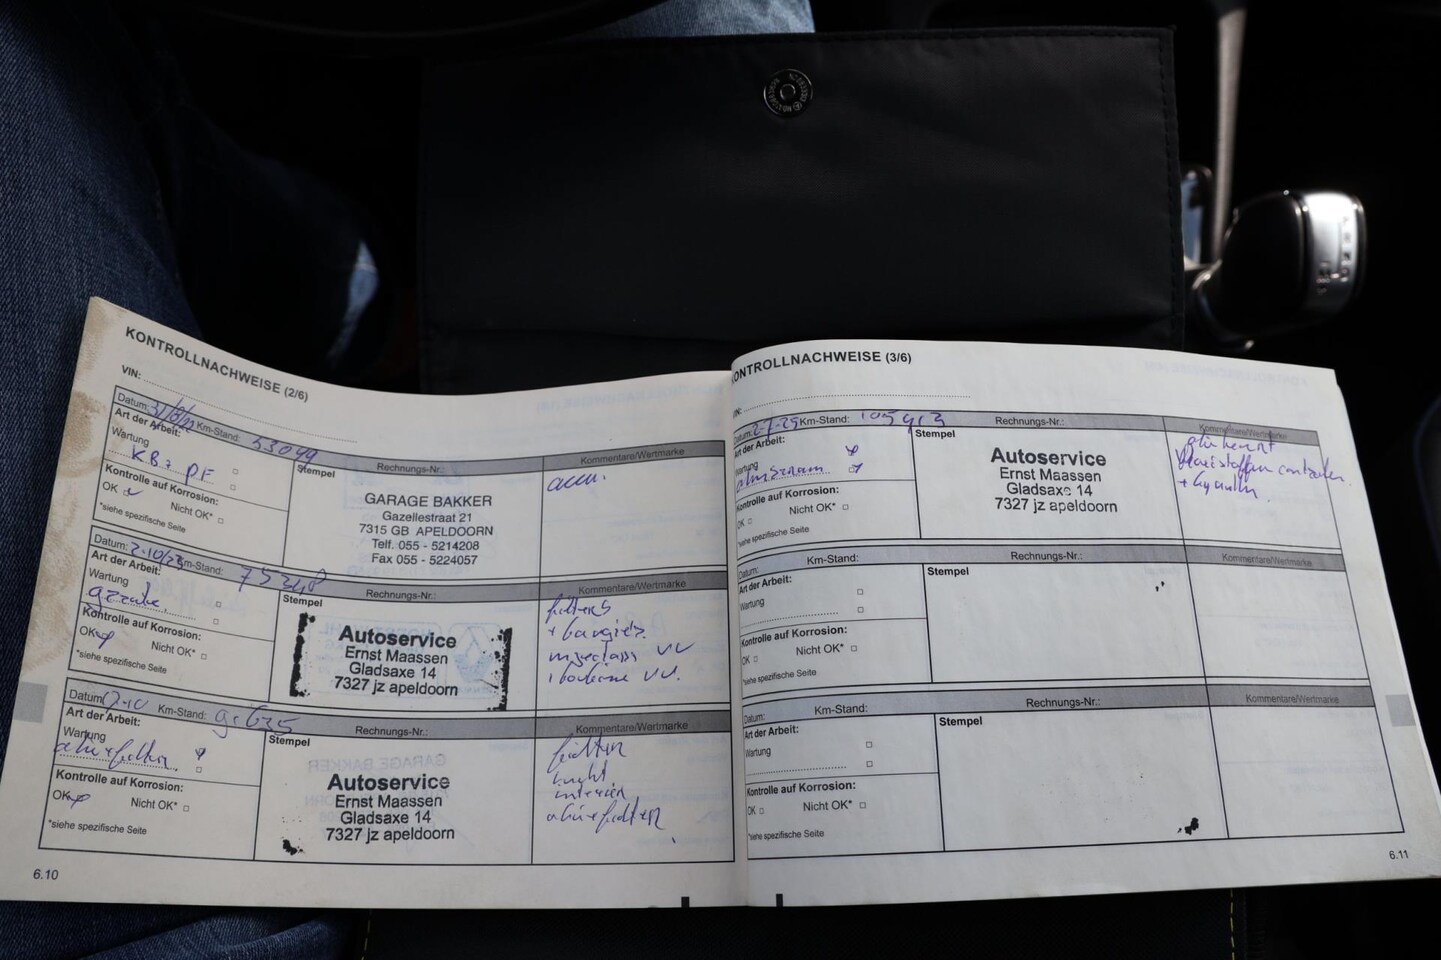 KONTROLLNACHWEISE (2/6)
VIN:
Datum: Km-Stand: 53099 Rechnungs-Nr.: Kommentare/Wertmarke
Art der Arbeit:
Wartung
Stempel
KB + PF
Kontrolle auf Korrosion:
OK Nicht OK*
*siehe spezifische Seite
GARAGE BAKKER
Gazellestraat 21
7315 GB APELDOORN
Telf. 055 - 5214208
Fax 055 - 5224057
accu.
Datum: 2-10/23 Km-Stand: 75348 Rechnungs-Nr.: Kommentare/Wertmarke
Art der Arbeit:
Wartung
Stempel
Kontrolle auf Korrosion:
OK Nicht OK*
*siehe spezifische Seite
Autoservice
Ernst Maassen
Gladsaxe 14
7327 jz apeldoorn
filters
+ bougies.
Datum Km-Stand: Rechnungs-Nr.: Kommentare/Wertmarke
Art der Arbeit:
Wartung
Stempel
Kontrolle auf Korrosion:
OK Nicht OK*
*siehe spezifische Seite
Autoservice
Ernst Maassen
Gladsaxe 14
7327 jz apeldoorn
filters
lucht
interieur
6.10
KONTROLLNACHWEISE (3/6)
VIN:
Datum: Km-Stand: 105913 Rechnungs-Nr.: Kommentare/Wertmarke
Art der Arbeit:
Wartung
Stempel
Kontrolle auf Korrosion:
OK Nicht OK*
*siehe spezifische Seite
Autoservice
Ernst Maassen
Gladsaxe 14
7327 jz apeldoorn
Datum: Km-Stand: Rechnungs-Nr.: Kommentare/Wertmarke
Art der Arbeit:
Wartung
Stempel
Kontrolle auf Korrosion:
OK Nicht OK*
*siehe spezifische Seite
Datum: Km-Stand: Rechnungs-Nr.: Kommentare/Wertmarke
Art der Arbeit:
Wartung
Stempel
Kontrolle auf Korrosion:
OK Nicht OK*
*siehe spezifische Seite
6.11